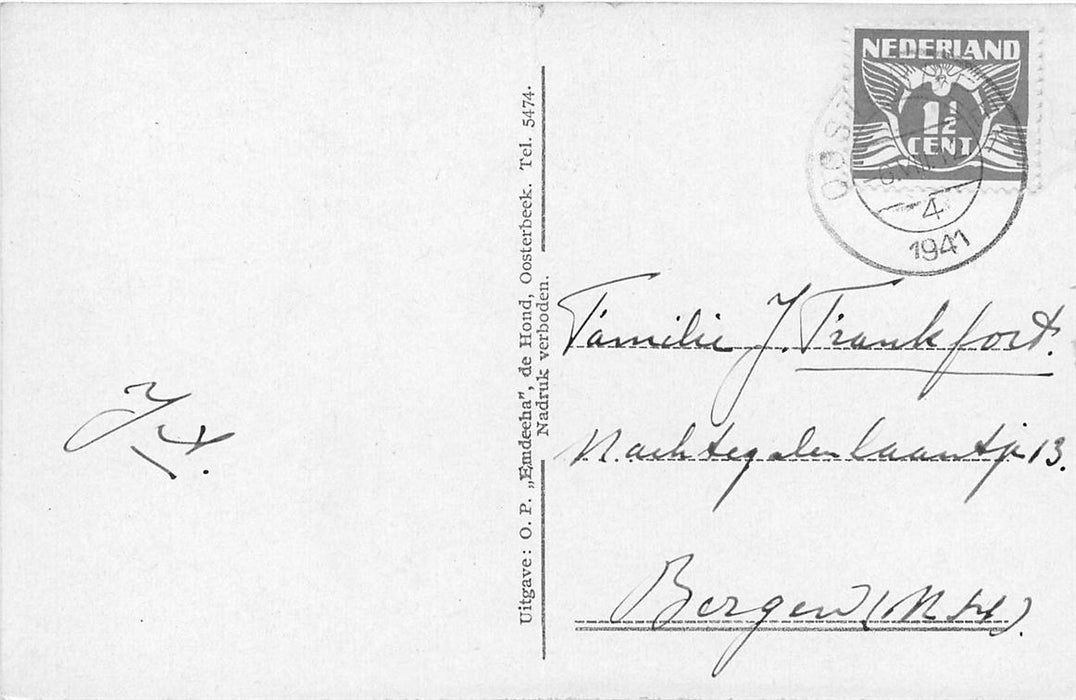 NEDERLAND
1½
CENT
4
1941
Uitgave: O. P. „Emdeeha", de Hond, Oosterbeek. Tel. 5474.
Nadruk verboden.
Familie J. Frankfort.
Nachtegalenlaantje 13.
Bergen (N.H.).